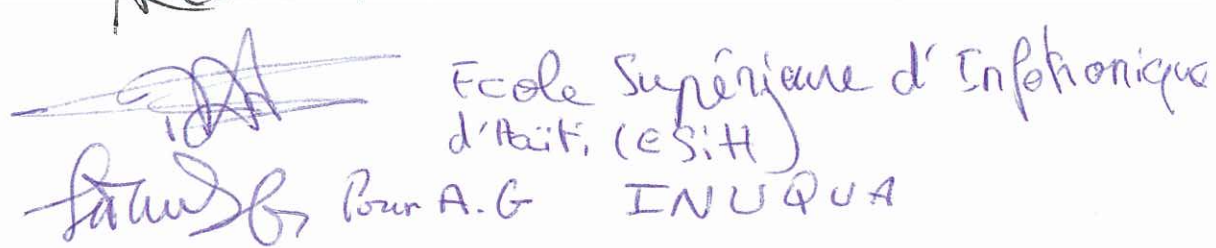 Ecole Supérieure d'Infotronique
d'Haïti (ESIH)
Pour A.G INUQUA